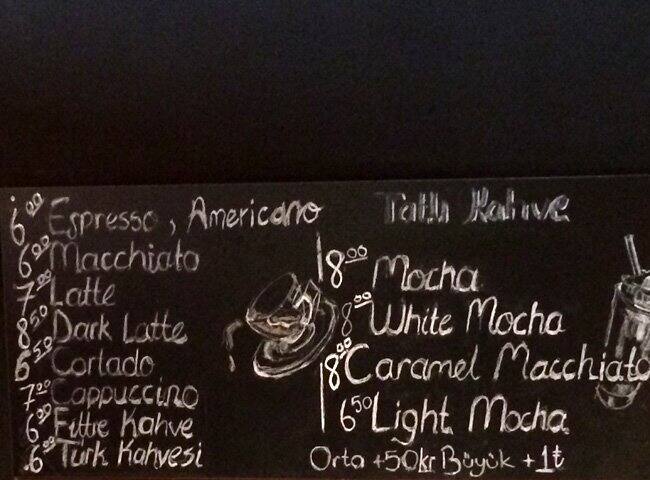 6.00 Espresso, Americano
6.00 Macchiato
7.00 Latte
8.50 Dark Latte
6.50 Cortado
7.00 Cappuccino
6.00 Filtre Kahve
6.00 Türk Kahvesi
Tatlı Kahve
8.00 Mocha
8.00 White Mocha
8.00 Caramel Macchiato
6.50 Light Mocha
Orta +50kr Büyük +1₺